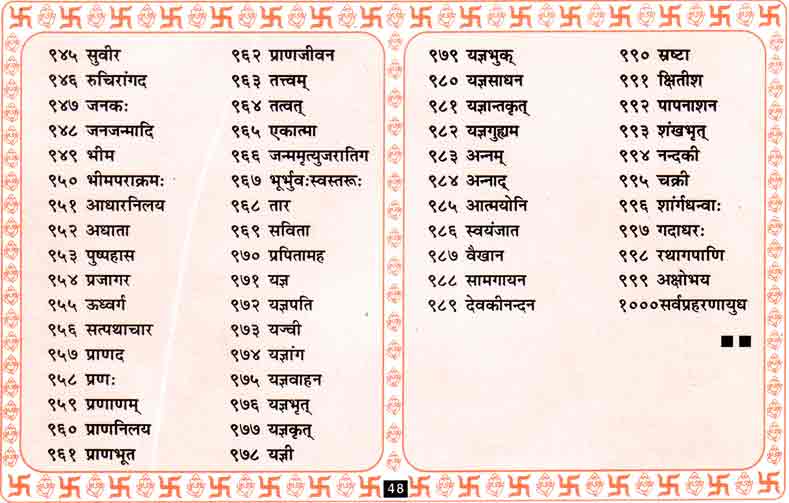 ९४५ सुवीर
९४६ रुचिरांगद
९४७ जनकः
९४८ जनजन्मादि
९४९ भीम
९५० भीमपराक्रमः
९५१ आधारनिलय
९५२ अधाता
९५३ पुष्पहास
९५४ प्रजागर
९५५ ऊर्ध्वग
९५६ सत्पथाचार
९५७ प्राणद
९५८ प्रणः
९५९ प्रणाणम्
९६० प्राणनिलय
९६१ प्राणभूत
९६२ प्राणजीवन
९६३ तत्त्वम्
९६४ तत्वत्
९६५ एकात्मा
९६६ जन्ममृत्युजरातिग
९६७ भूर्भुवःस्वस्तरूः
९६८ तार
९६९ सविता
९७० प्रपितामह
९७१ यज्ञ
९७२ यज्ञपति
९७३ यज्वी
९७४ यज्ञांग
९७५ यज्ञवाहन
९७६ यज्ञभृत्
९७७ यज्ञकृत्
९७८ यज्ञी
९७९ यज्ञभुक्
९८० यज्ञसाधन
९८१ यज्ञान्तकृत्
९८२ यज्ञगुह्यम
९८३ अन्नम्
९८४ अन्नाद्
९८५ आत्मयोनि
९८६ स्वयंजात
९८७ वैखान
९८८ सामगायन
९८९ देवकीनन्दन
९९० स्रष्टा
९९१ क्षितीश
९९२ पापनाशन
९९३ शंखभृत्
९९४ नन्दकी
९९५ चक्री
९९६ शांर्गधन्वाः
९९७ गदाधरः
९९८ रथागपाणि
९९९ अक्षोभय
१०००सर्वप्रहरणायुध
48